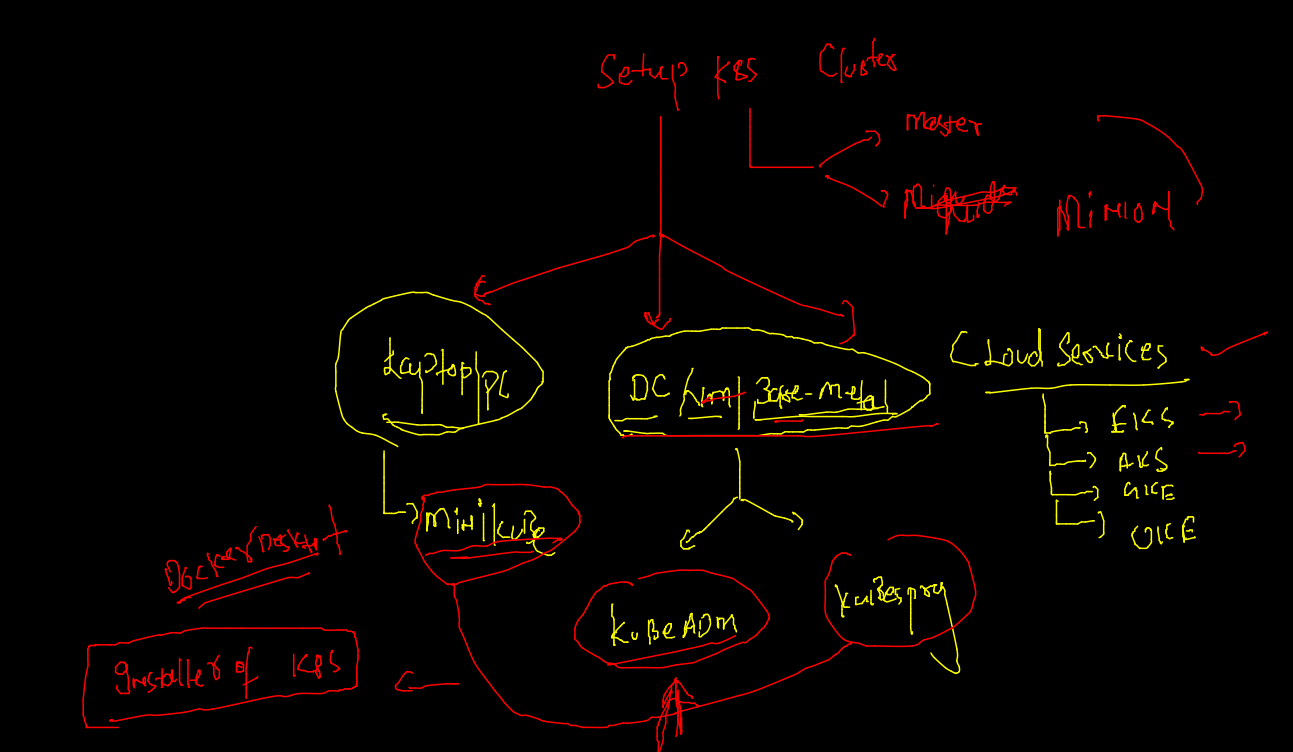 Setup K8S Cluster
Master
MiNiON
Laptop/PC
DC /vm/ Bare-Metal
CLoud Services
EKS
AKS
GKE
OKE
MiNikuBe
DockerDesktop
KuBeADM
KuBespray
Installer of K8S